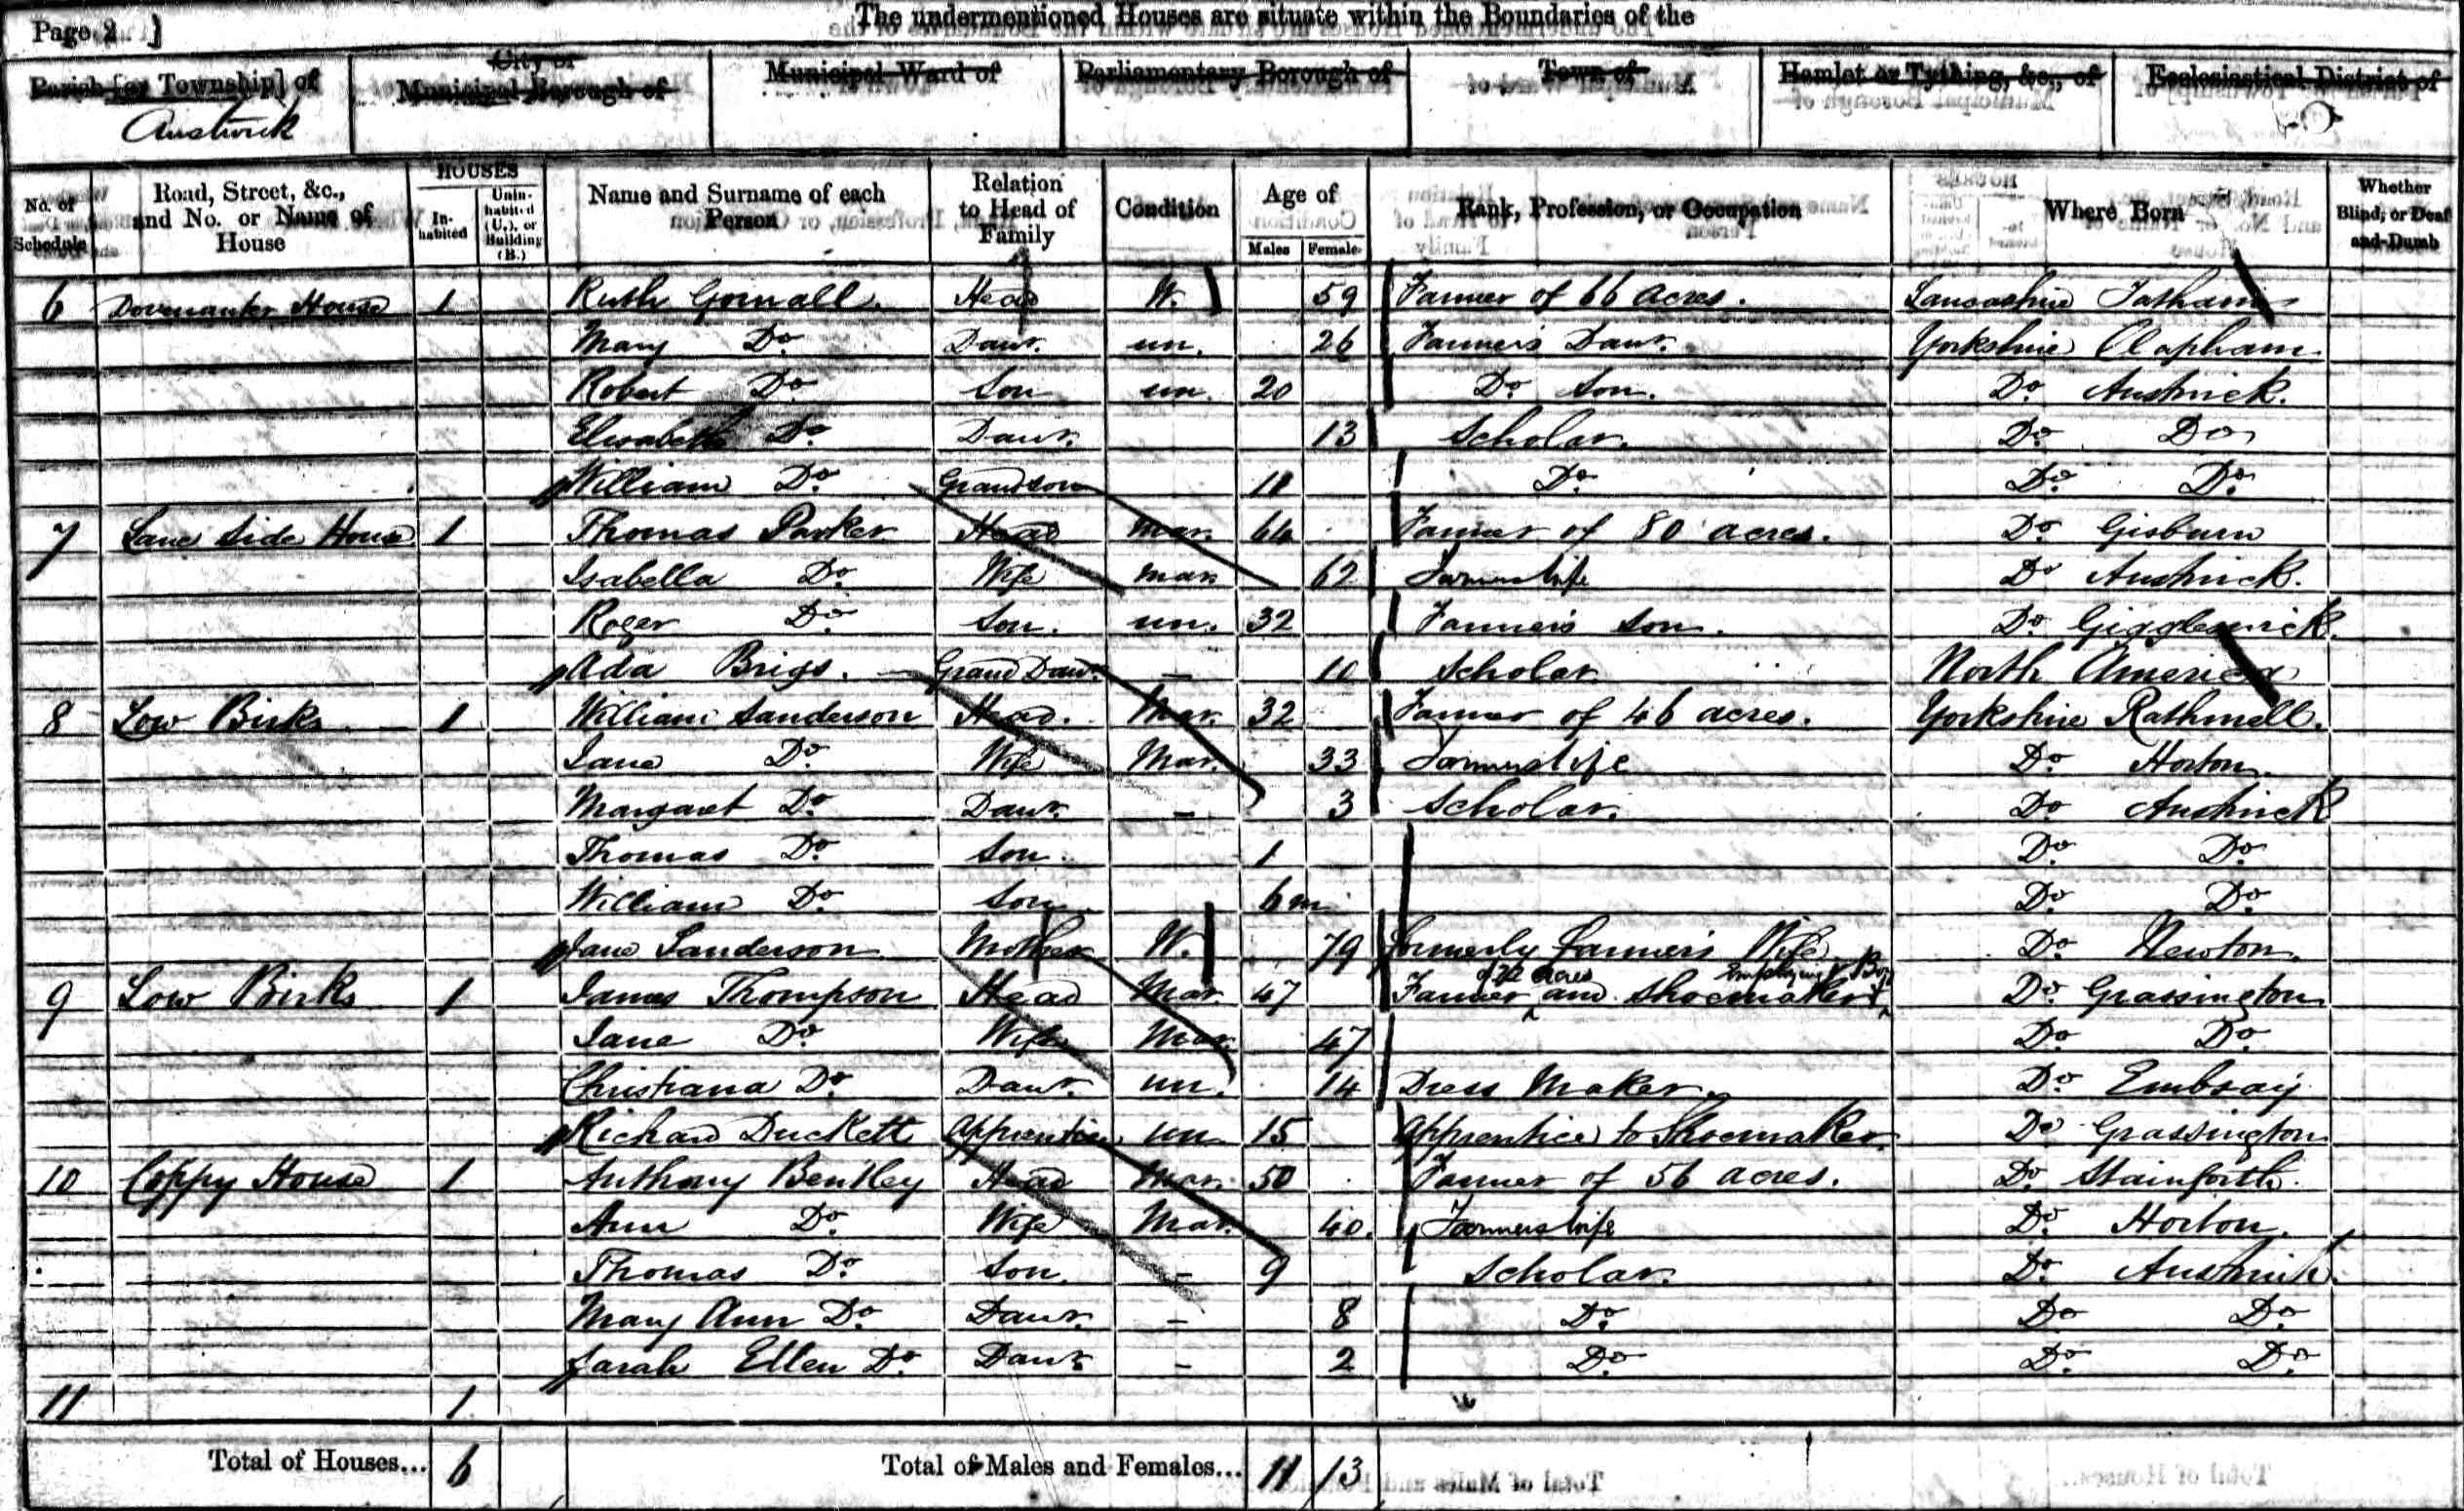 Page 2 ]
The undermentioned Houses are situate within the Boundaries of the
Parish [or Township] of
City or Municipal Borough of
Municipal Ward of
Parliamentary Borough of
Town of
Hamlet or Tything, &c., of
Ecclesiastical District of
Austwick
No. of Schedule
Road, Street, &c., and No. or Name of House
HOUSES
In-habited
Unin-habited (U.), or Building (B.)
Name and Surname of each Person
Relation to Head of Family
Condition
Age of
Males
Females
Rank, Profession, or Occupation
Where Born
Whether Blind, or Deaf-and-Dumb
6 House 1 Ruth Gornall. Head W. 59 Farmer of 66 acres. Lancashire Tatham
Mary Do. Daur. un. 26 Farmer's Daur. Yorkshire Clapham.
Robert Do. Son un. 20 Do. Son. Do. Austwick.
Elisabeth Do. Daur. 13 Scholar. Do. Do.
William Do. Grandson 11 Do. Do. Do.
7 Lane Side House 1 Thomas Parker Head Mar. 64 Farmer of 80 acres. Do. Gisburn
Isabella Do. Wife Mar. 62 Farmers Wife Do. Austwick.
Roger Do. Son. un. 32 Farmer's Son. Do. Giggleswick.
Ada Brigs. Grand Daur. — 10 Scholar North America
8 Low Birks 1 William Sanderson Head. Mar. 32 Farmer of 46 acres. Yorkshire Rathmell.
Jane Do. Wife Mar. 33 Farmers Wife Do. Horton.
Margaret Do. Daur. — 3 Scholar. Do. Austwick
Thomas Do. Son. 1 Do. Do.
William Do. Son. 6m Do. Do.
Jane Sanderson Mother W. 79 Formerly farmer's Wife Do. Newton.
9 Low Birks 1 James Thompson Head Mar. 47 Farmer acres and Shoemaker employing Boy Do. Grassington
Jane Do. Wife Mar. 47 Do. Do.
Christiana Do. Daur. un. 14 Dress Maker. Do. Embsay
Richard Duckett Apprentice un 15 Apprentice to Shoemaker. Do. Grassington
10 Coppy House 1 Anthony Bentley Head Mar. 50 Farmer of 56 acres. Do. Stainforth.
Ann Do. Wife Mar. 40. Farmers Wife Do. Horton.
Thomas Do. Son. — 9 Scholar. Do. Austwick.
Mary Ann Do. Daur. — 8 Do. Do. Do.
Sarah Ellen Do. Daur. — 2 Do. Do. Do.
11 1
Total of Houses... 6 Total of Males and Females... 11 13